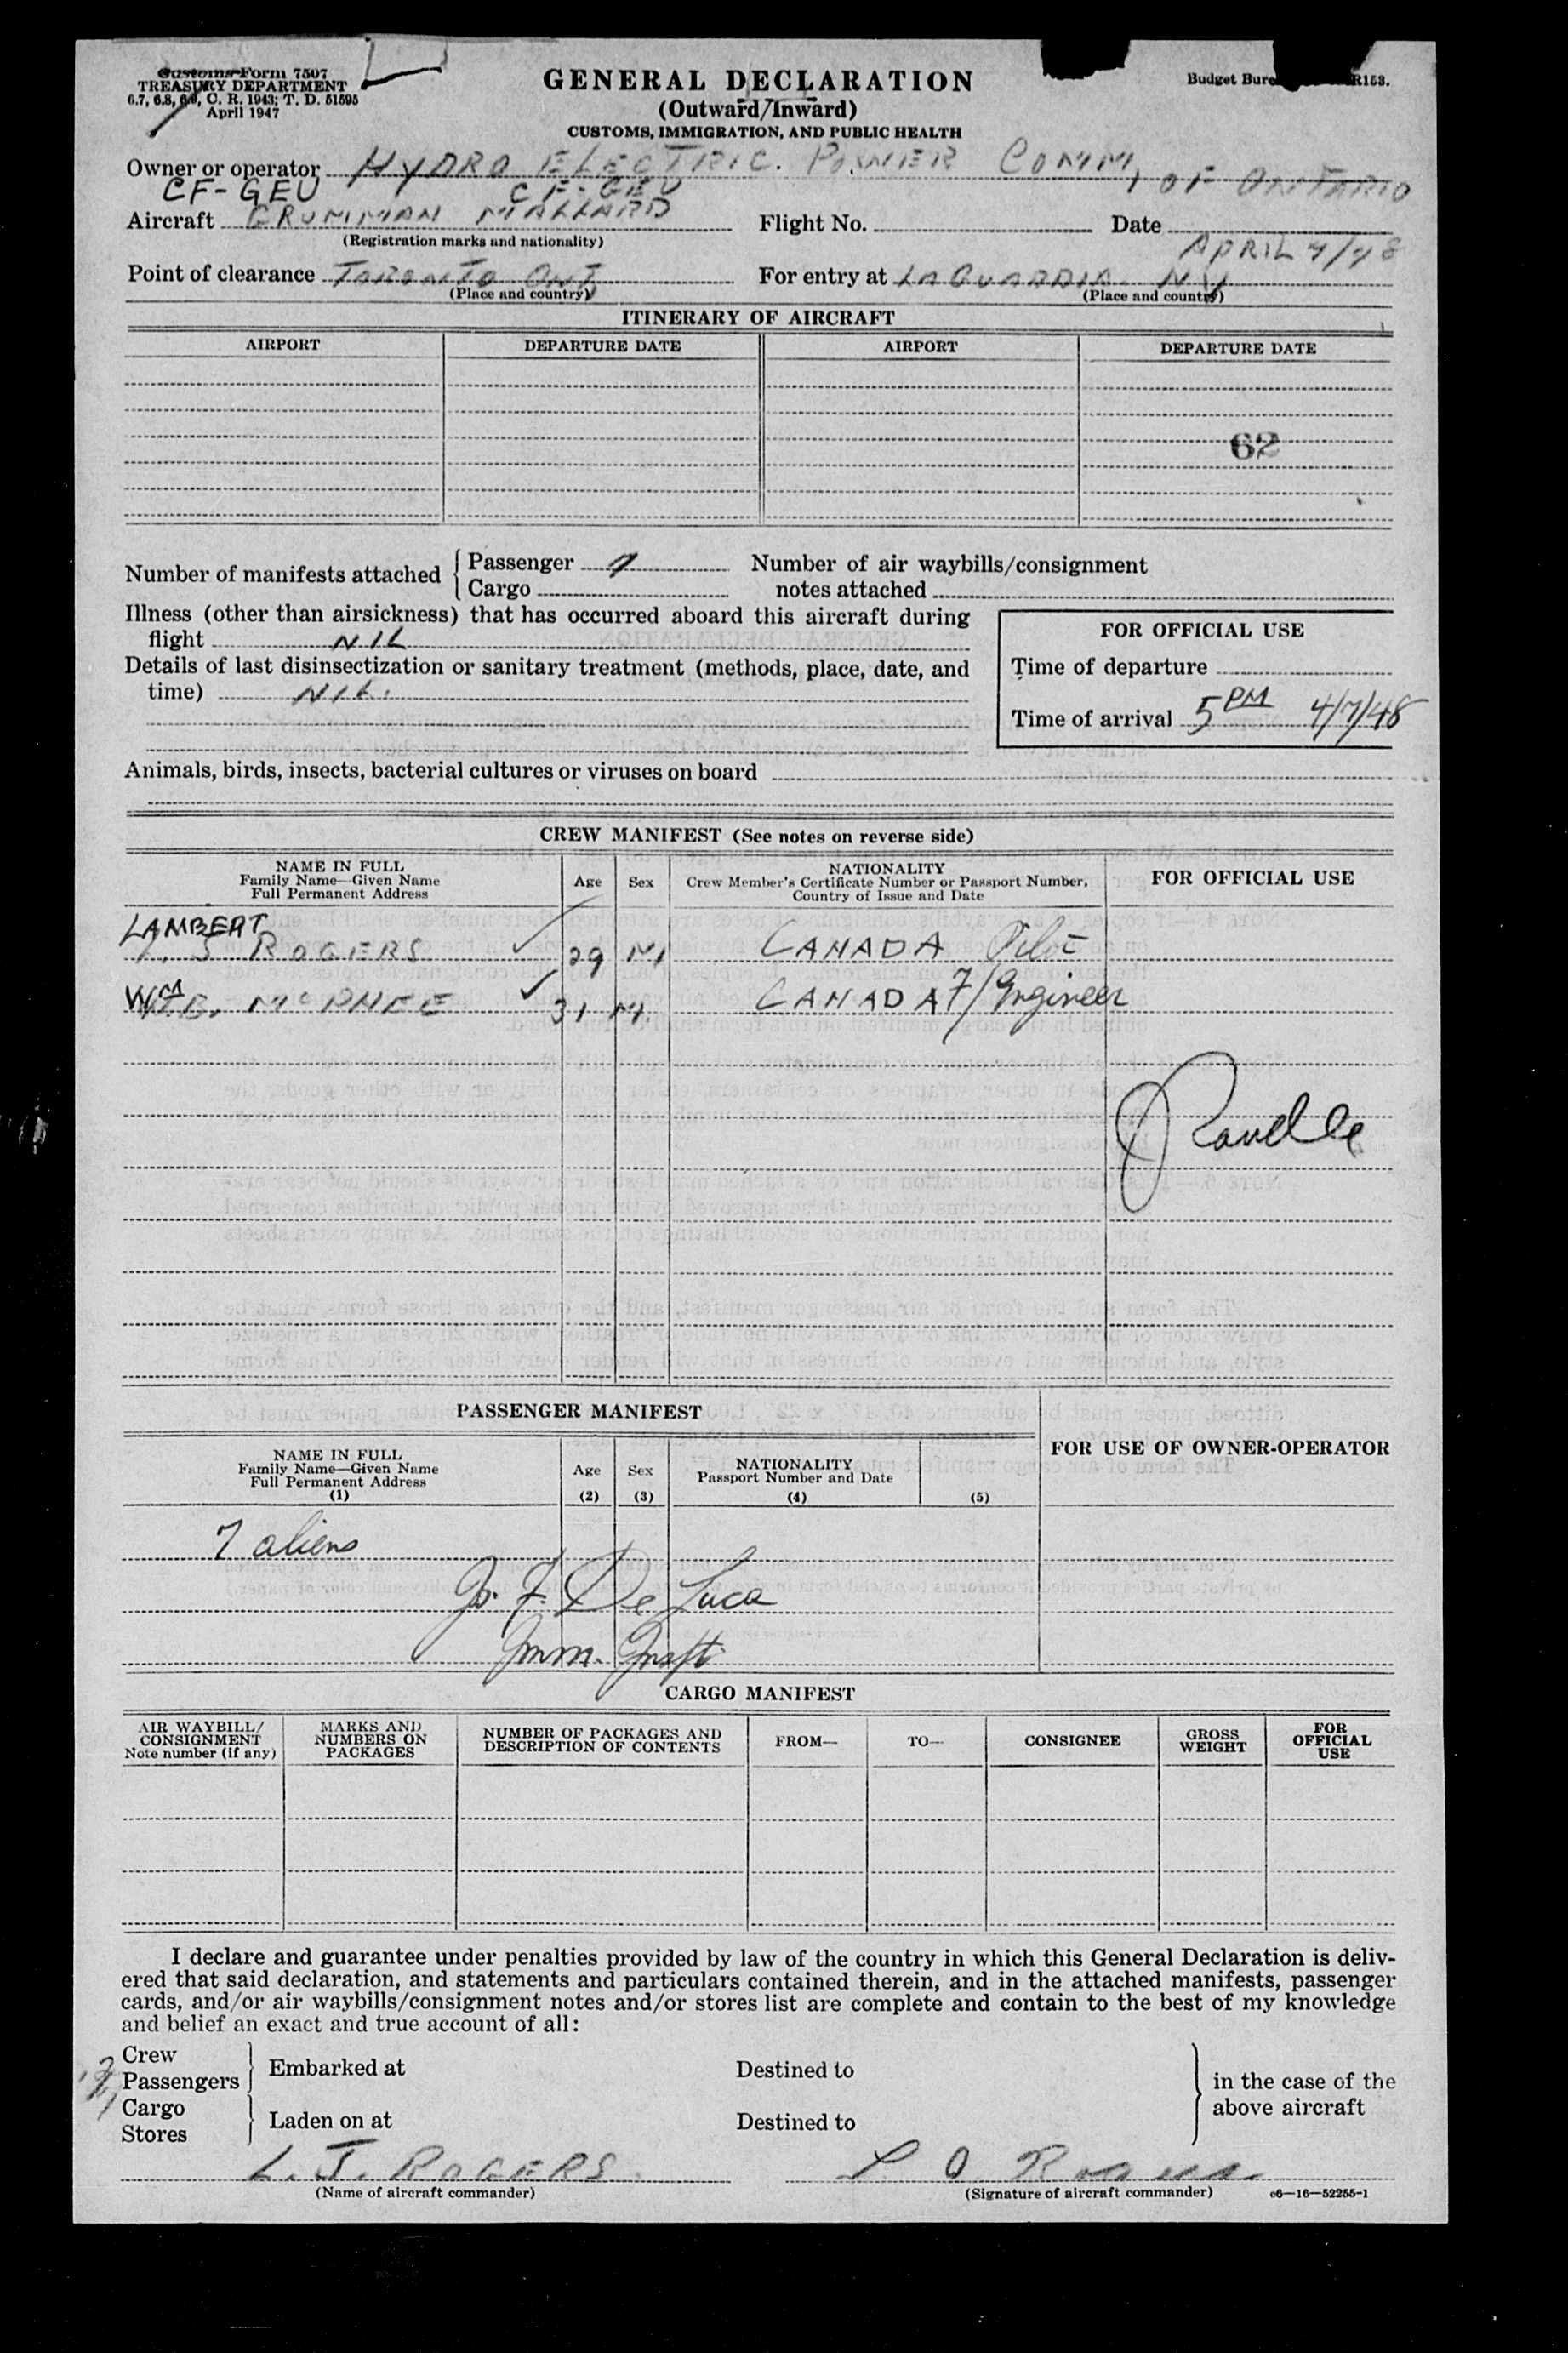 Customs Form 7507
TREASURY DEPARTMENT
6.7, 6.8, 6.9, C. R. 1943; T. D. 51595
April 1947
GENERAL DECLARATION
(Outward/Inward)
CUSTOMS, IMMIGRATION, AND PUBLIC HEALTH
Budget Bure R153.
Owner or operator HYDRO ELECTRIC. POWER COMM, OF ONTARIO
CF-GEU CF-GEU
Aircraft GRUMMAN MALLARD Flight No. Date APRIL 7/48
(Registration marks and nationality)
Point of clearance TORONTO ONT For entry at LAGUARDIA. NY
(Place and country) (Place and country)
ITINERARY OF AIRCRAFT
AIRPORT DEPARTURE DATE AIRPORT DEPARTURE DATE
62
Number of manifests attached Passenger 7 Number of air waybills/consignment
Cargo notes attached
Illness (other than airsickness) that has occurred aboard this aircraft during
flight NIL
Details of last disinsectization or sanitary treatment (methods, place, date, and
time) NIL.
FOR OFFICIAL USE
Time of departure
Time of arrival 5 PM 4/7/48
Animals, birds, insects, bacterial cultures or viruses on board
CREW MANIFEST (See notes on reverse side)
NAME IN FULL
Family Name—Given Name
Full Permanent Address
Age Sex
NATIONALITY
Crew Member's Certificate Number or Passport Number,
Country of Issue and Date
FOR OFFICIAL USE
LAMBERT
L. J ROGERS 29 M CANADA Pilot
WM B. McPHEE 31 M. CANADA F/Engineer
PASSENGER MANIFEST
NAME IN FULL
Family Name—Given Name
Full Permanent Address
(1)
Age
(2)
Sex
(3)
NATIONALITY
Passport Number and Date
(4) (5)
FOR USE OF OWNER-OPERATOR
7 aliens
Jos. F. De Luca
Imm. Inspt.
CARGO MANIFEST
AIR WAYBILL/
CONSIGNMENT
Note number (if any)
MARKS AND
NUMBERS ON
PACKAGES
NUMBER OF PACKAGES AND
DESCRIPTION OF CONTENTS
FROM— TO— CONSIGNEE
GROSS
WEIGHT
FOR
OFFICIAL
USE
I declare and guarantee under penalties provided by law of the country in which this General Declaration is deliv-
ered that said declaration, and statements and particulars contained therein, and in the attached manifests, passenger
cards, and/or air waybills/consignment notes and/or stores list are complete and contain to the best of my knowledge
and belief an exact and true account of all:
Crew
Passengers Embarked at Destined to in the case of the
Cargo above aircraft
Stores Laden on at Destined to
L. J. ROGERS
(Name of aircraft commander) (Signature of aircraft commander) c6—16—52255-1